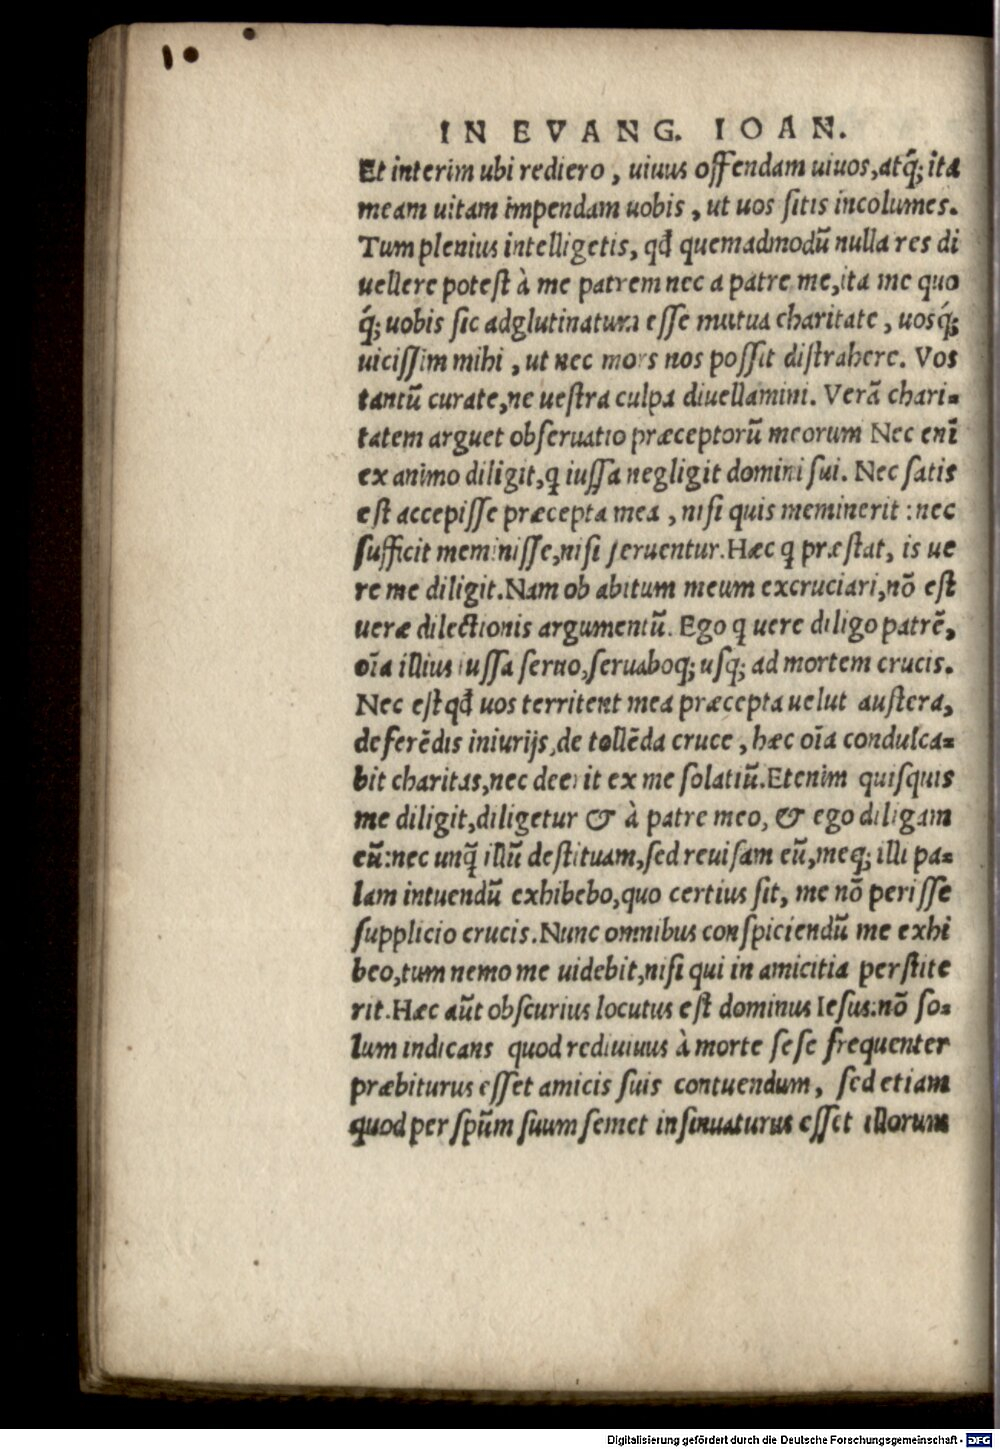 IN EVANG. IOAN.
Et interim ubi rediero, uiuus offendam uiuos, atq́; ita
meam uitam impendam uobis, ut uos sitis incolumes.
Tum plenius intelligetis, qđ quemadmodũ nulla res di
uellere potest à me patrem nec a patre me, ita me quo
q́; uobis sic adglutinatum esse mutua charitate, uosq́;
uicissim mihi, ut nec mors nos possit distrahere. Vos
tantũ curate, ne uestra culpa diuellamini. Verã chari-
tatem arguet obseruatio præceptorũ meorum Nec enĩ
ex animo diligit, q iussa negligit domini sui. Nec satis
est accepisse præcepta mea, nisi quis meminerit: nec
sufficit meminisse, nisi seruentur. Hæc q præstat, is ue
re me diligit. Nam ob abitum meum excruciari, nõ est
ueræ dilectionis argumentũ. Ego q uere diligo patrẽ,
oĩa illius iussa seruo, seruaboq; usq; ad mortem crucis.
Nec est qđ uos territent mea præcepta uelut austera,
de ferẽdis iniurijs, de tollẽda cruce, hæc oĩa condulca-
bit charitas, nec deerit ex me solatiũ. Etenim quisquis
me diligit, diligetur & à patre meo, & ego diligam
eũ: nec unq̃ illũ destituam, sed reuisam eũ, meq; illi pa-
lam intuendũ exhibebo, quo certius sit, me nõ perisse
supplicio crucis. Nunc omnibus conspiciendũ me exhi
beo, tum nemo me uidebit, nisi qui in amicitia perstite
rit. Hæc aũt obscurius locutus est dominus Iesus: nõ so-
lum indicans quod rediuiuus à morte sese frequenter
præbiturus esset amicis suis contuendum, sed etiam
quod per spũm suum semet insinuaturus esset illorum
Digitalisierung gefördert durch die Deutsche Forschungsgemeinschaft - DFG